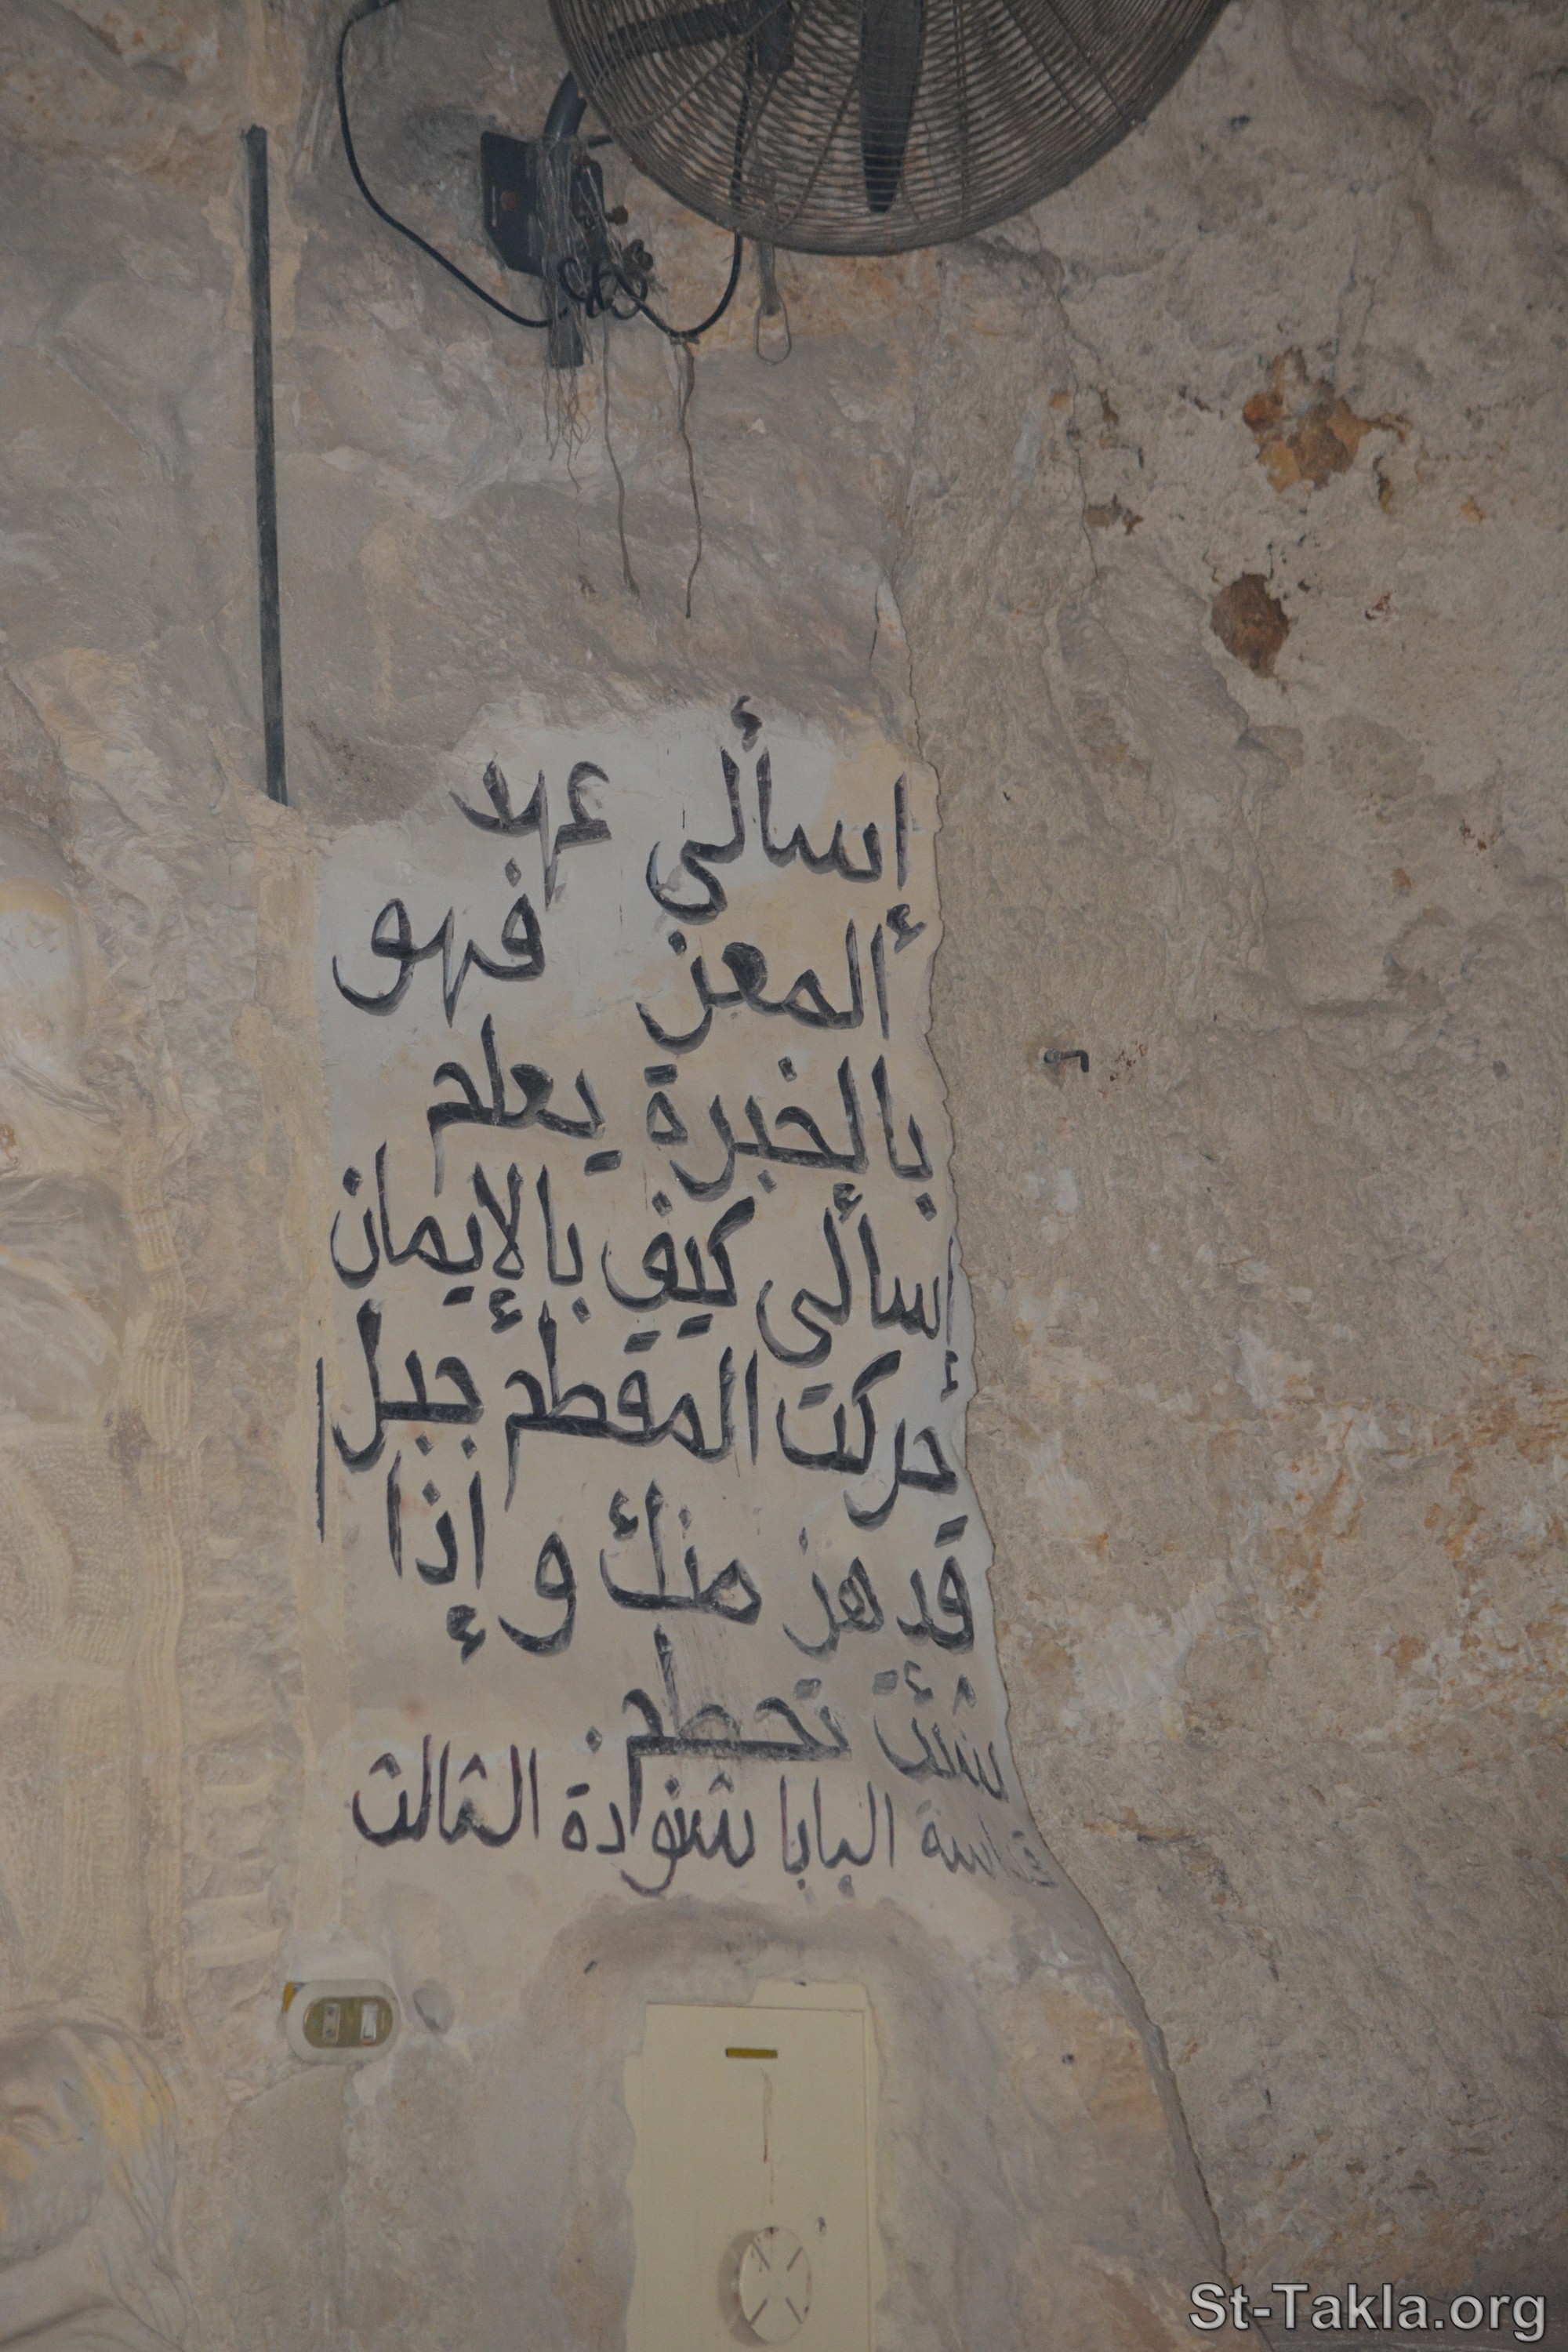 إسألي عهدا
المعز فهو
بالخبرة يعلم
إسألي كيف بالإيمان
حركت المقطم جبل
قد هز منك و إذا
شئت تحطم.
قداسة البابا شنودة الثالث
St-Takla.org